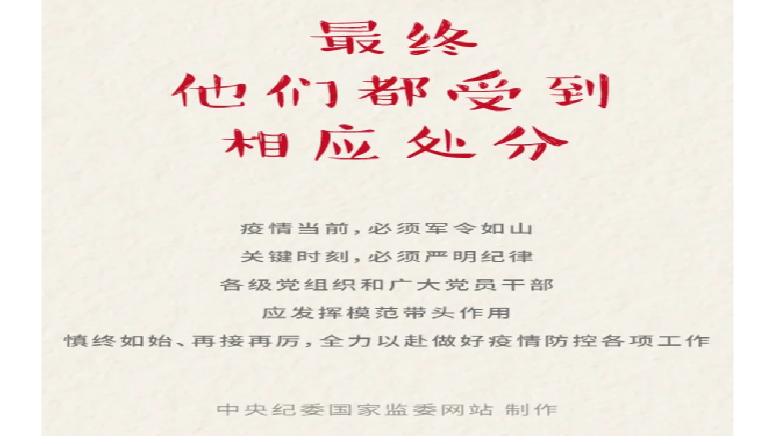 最终
他们都受到
相应处分
疫情当前,必须军令如山
关键时刻,必须严明纪律
各级党组织和广大党员干部
应发挥模范带头作用
慎终如始、再接再厉,全力以赴做好疫情防控各项工作
中央纪委国家监委网站 制作